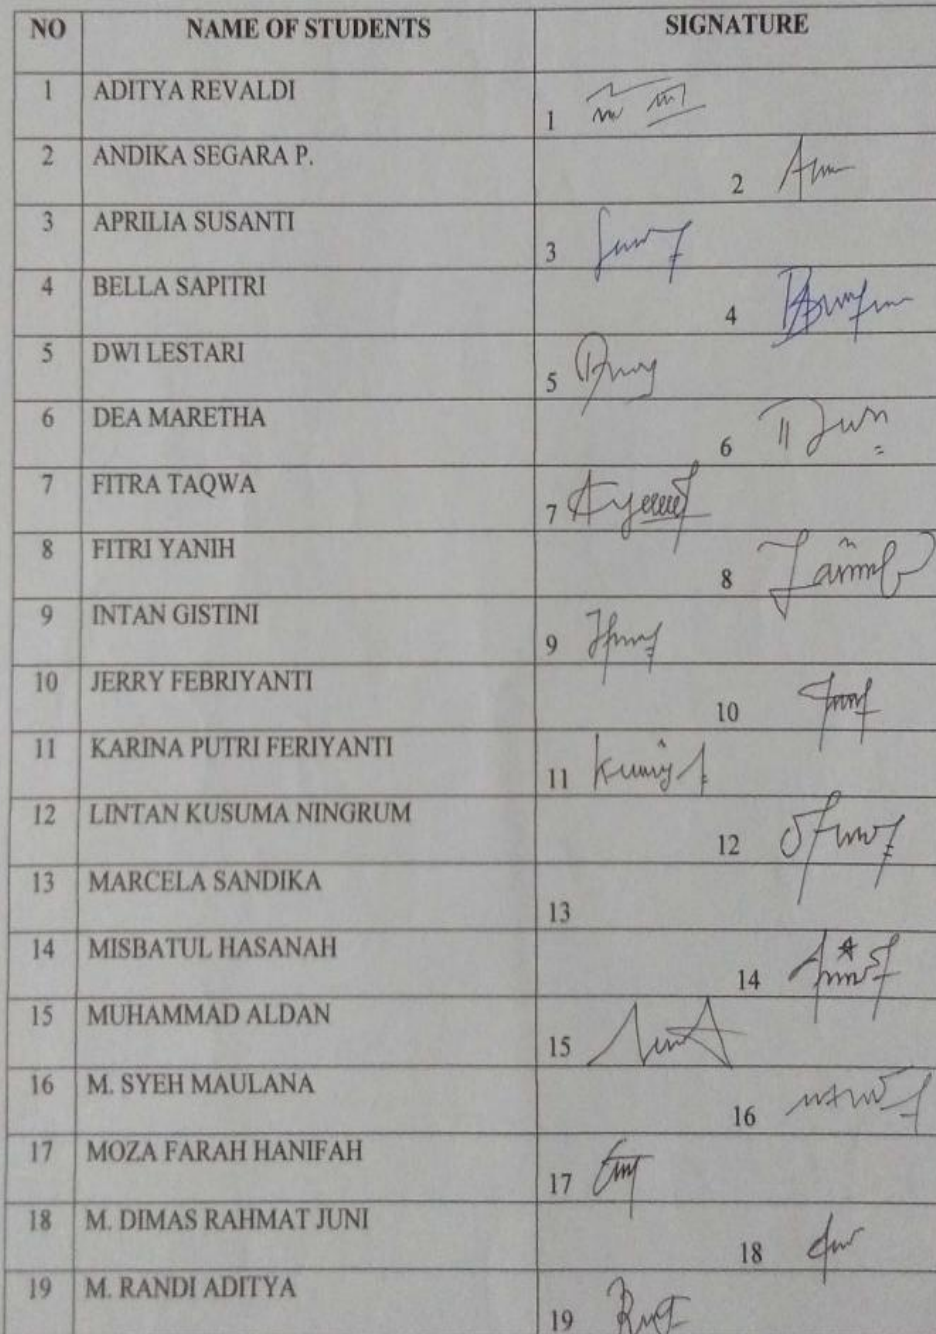 NO NAME OF STUDENTS SIGNATURE
1 ADITYA REVALDI 1
2 ANDIKA SEGARA P. 2
3 APRILIA SUSANTI 3
4 BELLA SAPITRI 4
5 DWI LESTARI 5
6 DEA MARETHA 6
7 FITRA TAQWA 7
8 FITRI YANIH 8
9 INTAN GISTINI 9
10 JERRY FEBRIYANTI 10
11 KARINA PUTRI FERIYANTI 11
12 LINTAN KUSUMA NINGRUM 12
13 MARCELA SANDIKA 13
14 MISBATUL HASANAH 14
15 MUHAMMAD ALDAN 15
16 M. SYEH MAULANA 16
17 MOZA FARAH HANIFAH 17
18 M. DIMAS RAHMAT JUNI 18
19 M. RANDI ADITYA 19